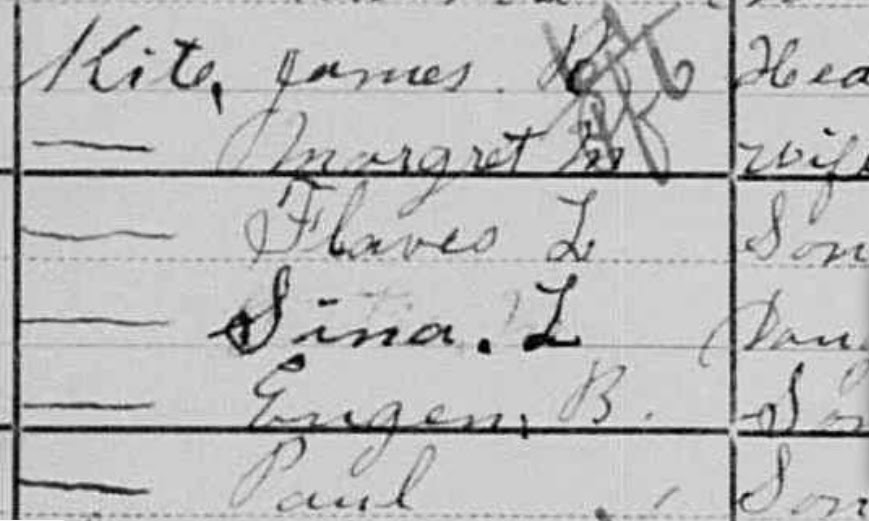 Kite, James. R Hea
— Margret M wife
— Flaves L Son
— Sina. L Daug
— Eugen, B. Son
— Paul Son